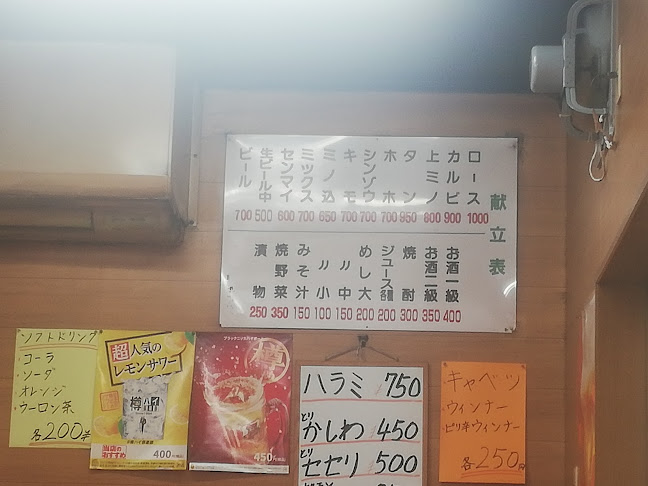 献立表
ロース 1000
カルビ 900
上ミノ 800
タン 950
ホホ 700
シンゾウ 700
キモ 700
ミノ込 650
ミックス 700
センマイ 600
生ビール中 500
ビール 700
お酒一級 400
お酒二級 350
焼酎 300
ジュース各種 200
めし大 200
〃中 150
〃小 100
みそ汁 150
焼野菜 350
漬物 250
ソフトドリンク
・コーラ
・ソーダ
・オレンジ
・ウーロン茶
各200円
超人気の
レモンサワー
樽ハイ
当店のおすすめ
400円(税込)
450円(税込)
ハラミ 750
とり
かしわ 450
とり
セセリ 500
・キャベツ
・ウィンナー
・ピリ辛ウィンナー
各250円